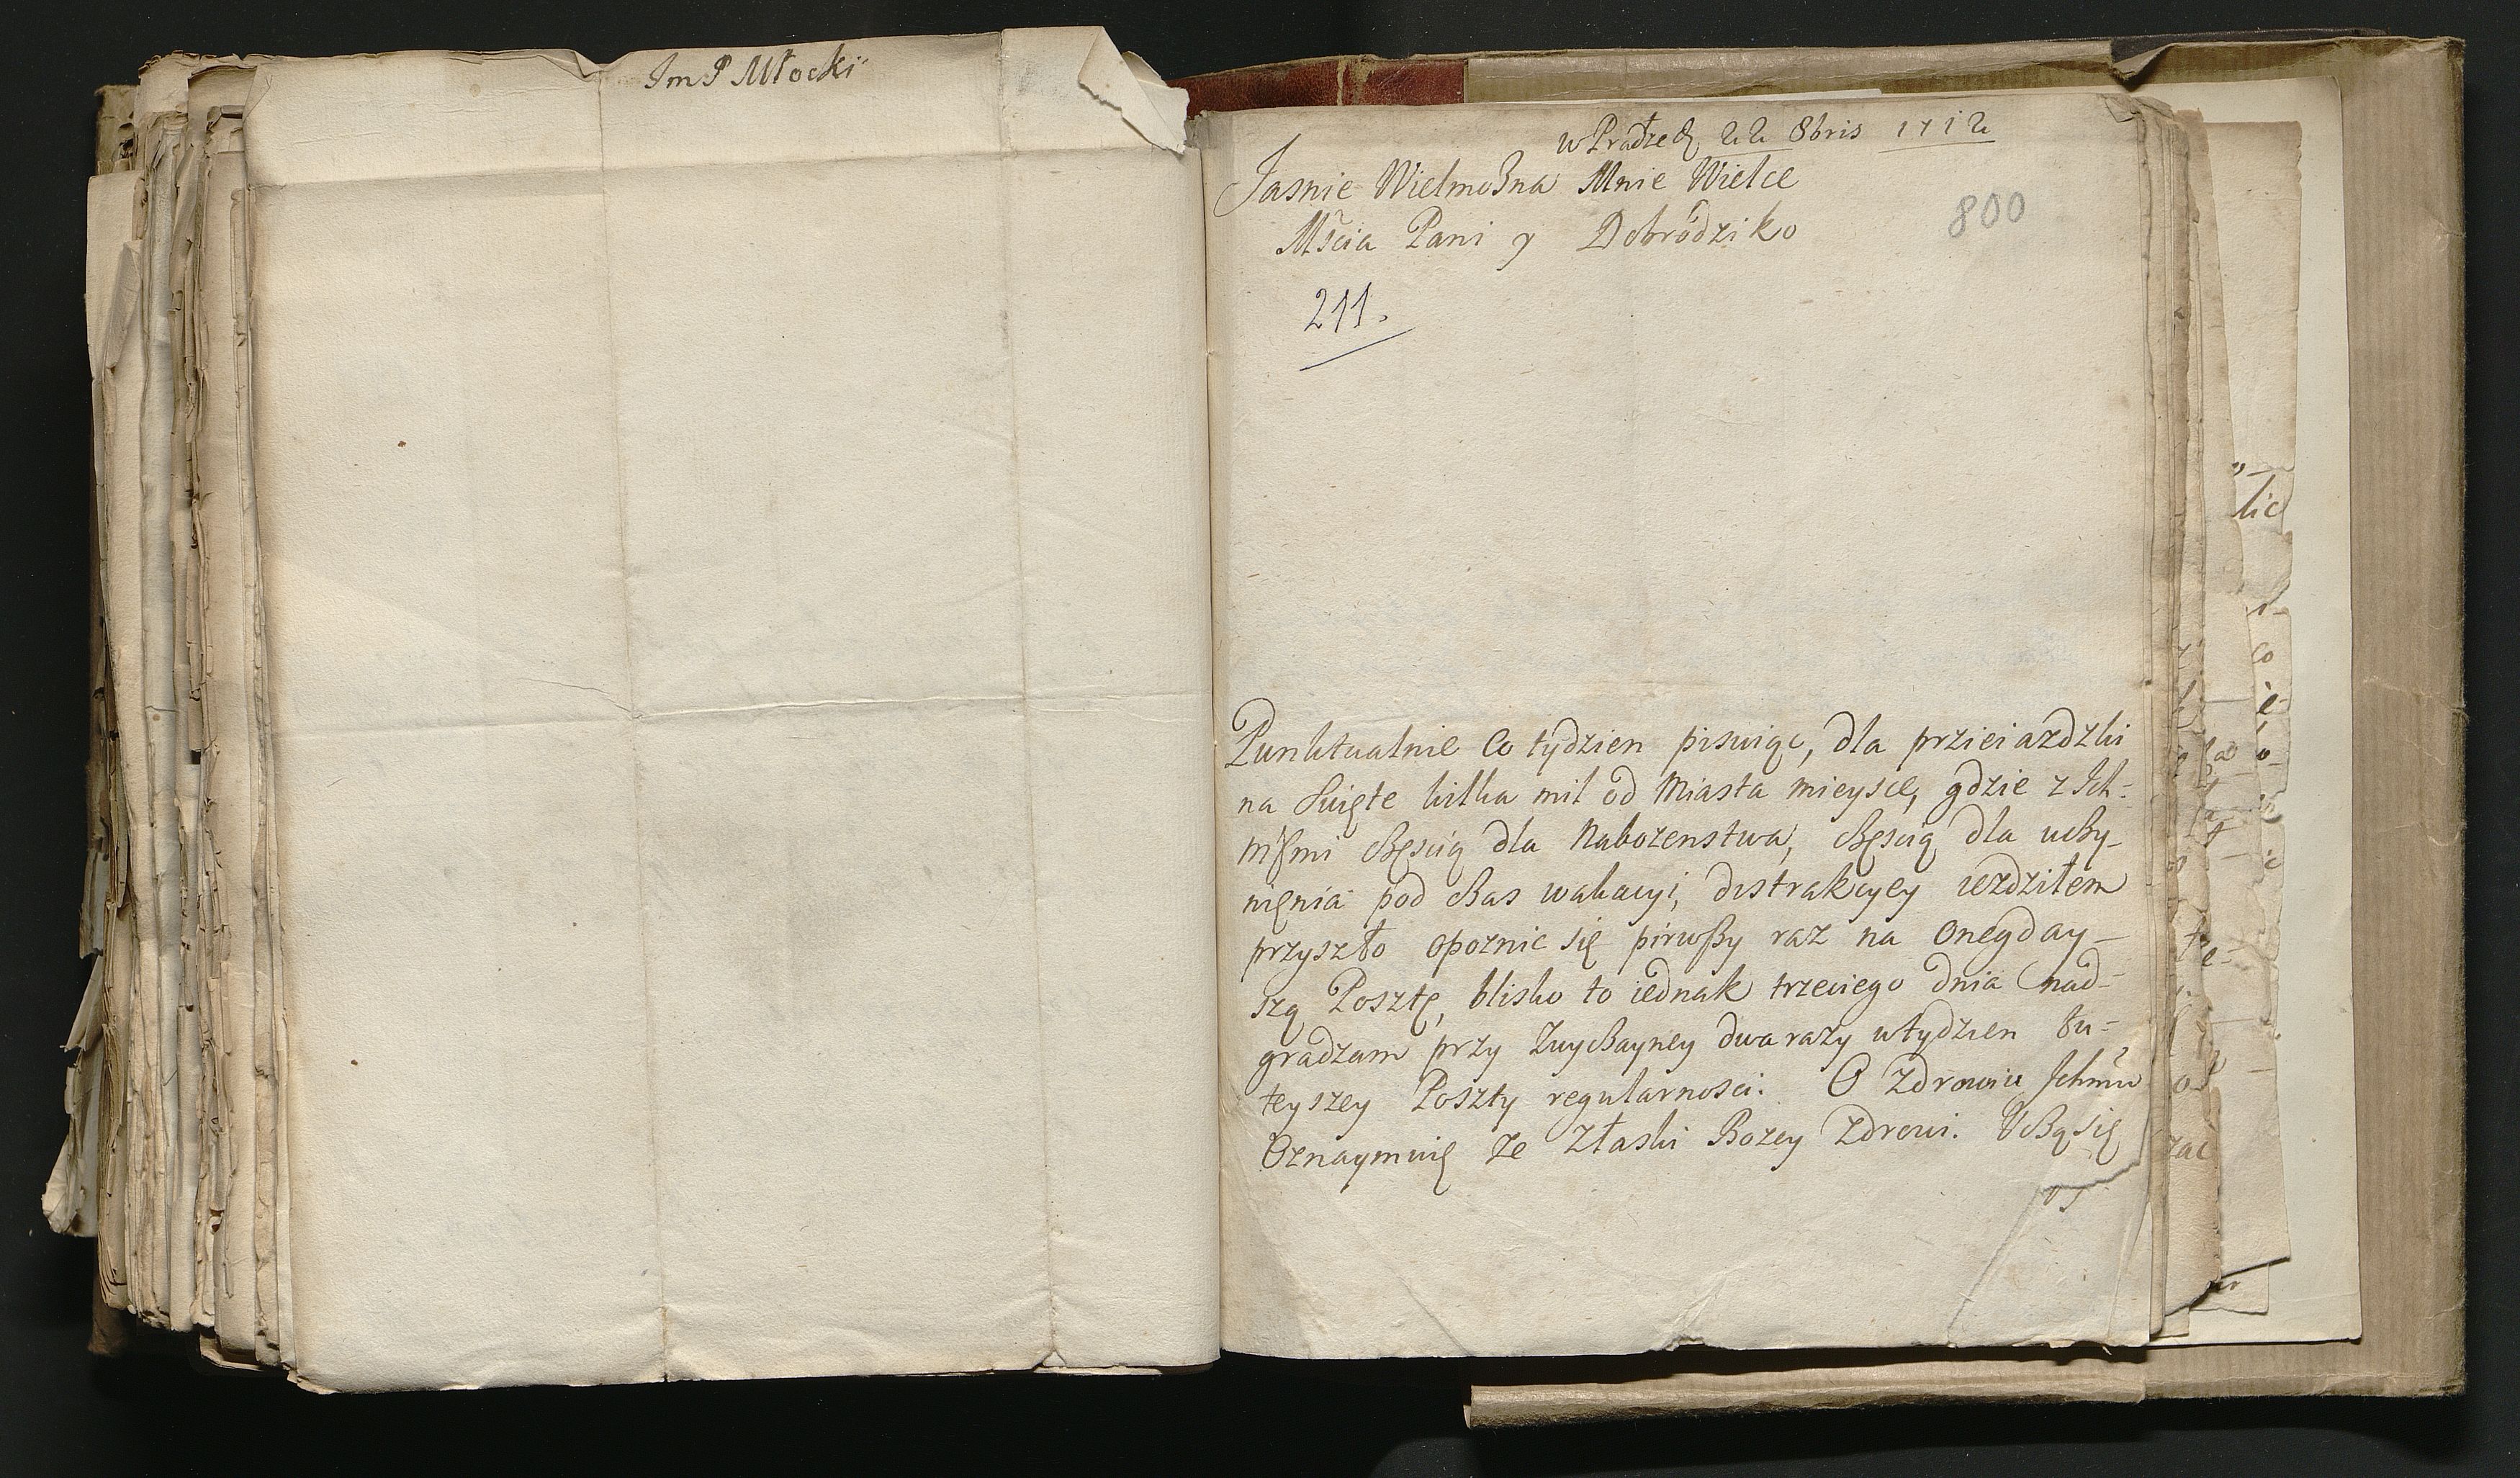 Im P Młocki
w Pradze D 22 8bris 1712
Jasnie Wielmożna Mnie Wielce
Mścia Pani y Dobrodziko
800
211.
Punktualnie Co tydzien pisuiąc, dla przieiazdzki
na Swięte kilka mil od Miasta mieysce, gdzie z Ich-
mśmi częścią dla Nabozenstwa, częścią dla uczy-
nięnia pod czas wakacyi, distrakcyey iezdziłem
przyszło opoznic się pirwszy raz na onegday-
szą Posztę, blisko to iednak trzeciego dnia nad-
gradzam przy Zwyczayney dwa razy w tydzien tu-
teyszey Poszty regularnosci. O Zdrowiu Ichmm
Oznaymuię ze Złaski Bozey Zdrowi. Uczą się
lic
co
zac